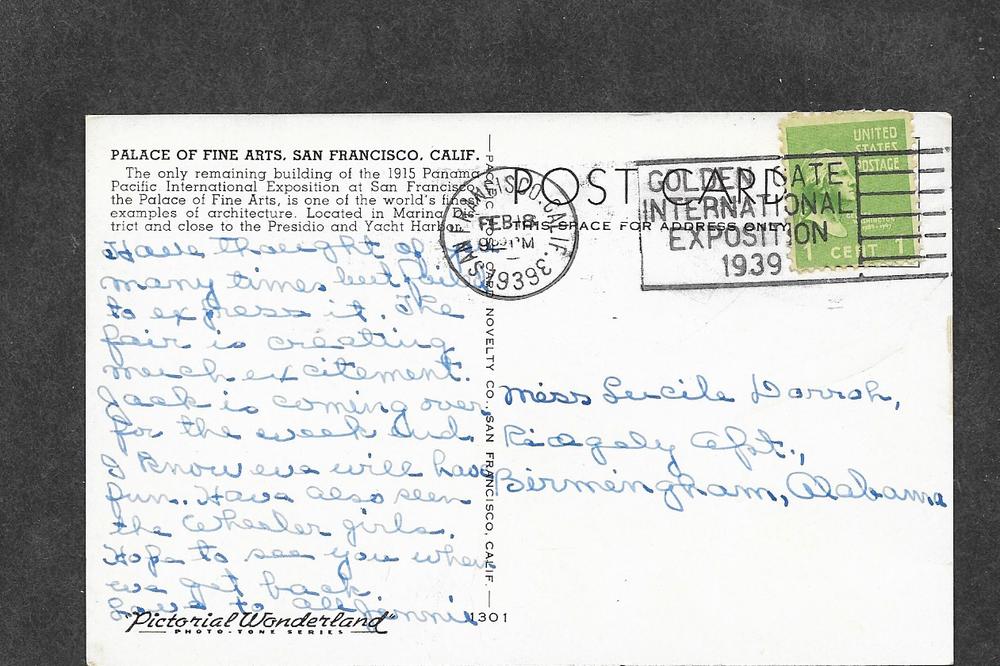 PALACE OF FINE ARTS, SAN FRANCISCO, CALIF.
The only remaining building of the 1915 Panama
Pacific International Exposition at San Francisco
the Palace of Fine Arts, is one of the world's finest
examples of architecture. Located in Marina Dis-
trict and close to the Presidio and Yacht Harbor.
Have thought of
many times but fail
to express it. The
fair is creating
much excitement.
Jack is coming over
for the week end.
I know we will have
fun. Have also seen
the Wheeler girls.
Hope to see you when
we get back.
Love to all Jinnie
"Pictorial Wonderland"
PHOTO-TONE SERIES
1301
CARD NOVELTY CO., SAN FRANCISCO, CALIF.
SAN FRANCISCO, CALIF.
FEB 8
PM
1939
POST CARD
THIS SPACE FOR ADDRESS ONLY
GOLDEN GATE
INTERNATIONAL
EXPOSITION
1939
UNITED
STATES
POSTAGE
1 CENT 1
Miss Lucile Darroh,
Ridgely Apt.,
Birmingham, Alabama